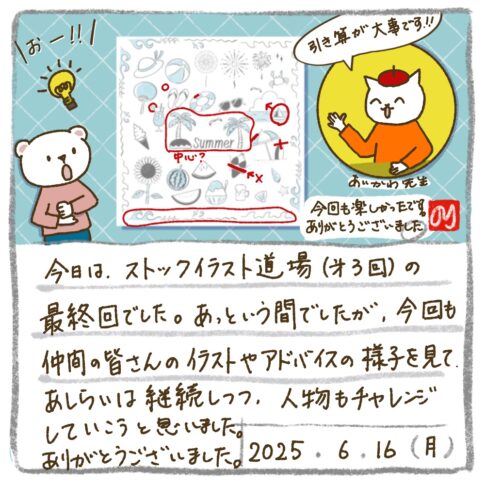 おー!!
引き算が大事です!!
Summer
中心?
あいかわ先生
今回も楽しかったです。
ありがとうございました
今日は、ストックイラスト道場(第3回)の
最終回でした。あっという間でしたが、今回も
仲間の皆さんのイラストやアドバイスの様子を見て、
あしらいは継続しつつ、人物もチャレンジ
していこうと思いました。
ありがとうございました。
2025.6.16(月)